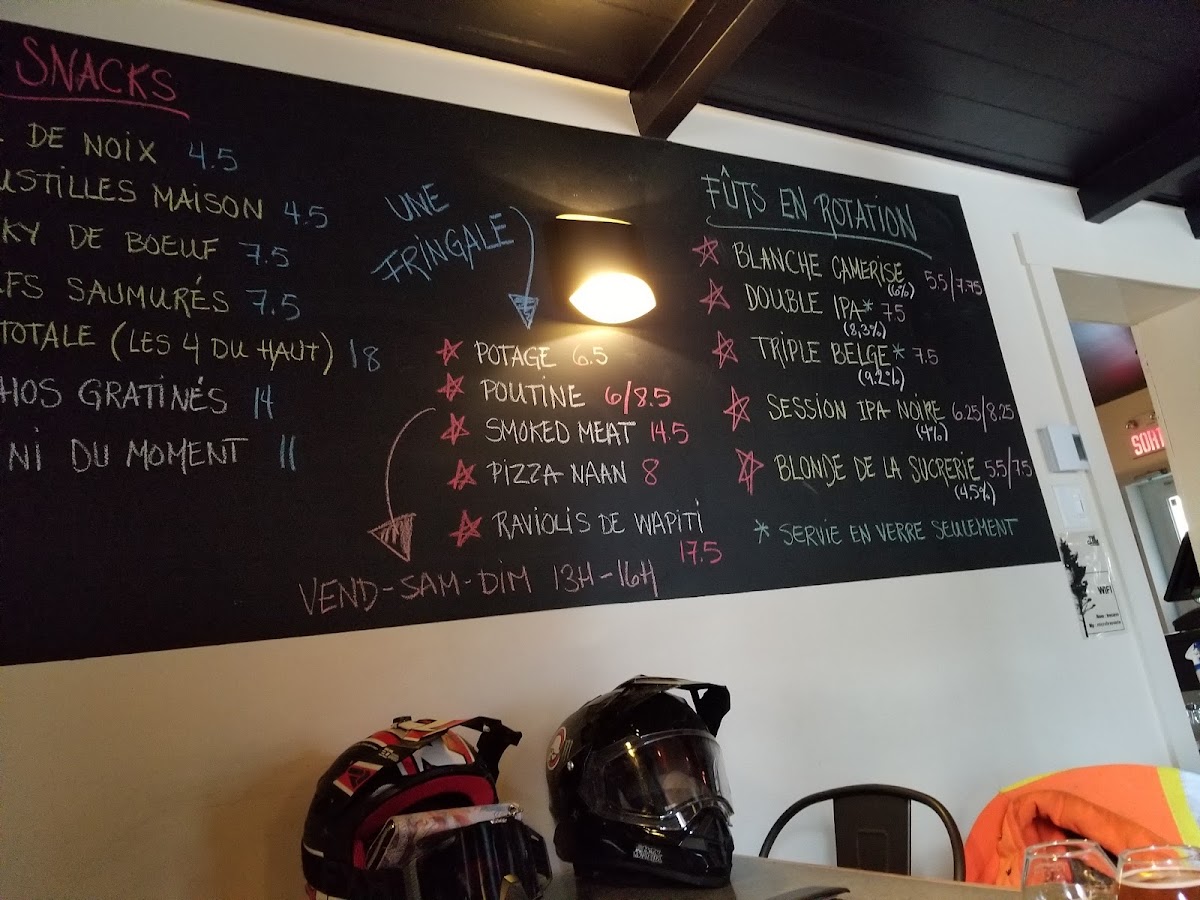 SNACKS
DE NOIX 4.5
USTILLES MAISON 4.5
KY DE BOEUF 7.5
FS SAUMURÉS 7.5
TOTALE (LES 4 DU HAUT) 18
HOS GRATINÉS 14
NI DU MOMENT 11
UNE
FRINGALE
POTAGE 6.5
POUTINE 6/8.5
SMOKED MEAT 14.5
PIZZA NAAN 8
RAVIOLIS DE WAPITI
17.5
VEND-SAM-DIM 13H-16H
FÛTS EN ROTATION
BLANCHE CAMERISE 5.5/7.75
(6%)
DOUBLE IPA* 7.5
(8,3%)
TRIPLE BELGE* 7.5
(9.2%)
SESSION IPA NOIRE 6.25/8.25
(4%)
BLONDE DE LA SUCRERIE 5.5/7.5
(4.5%)
* SERVIE EN VERRE SEULEMENT
SORT
WiFi